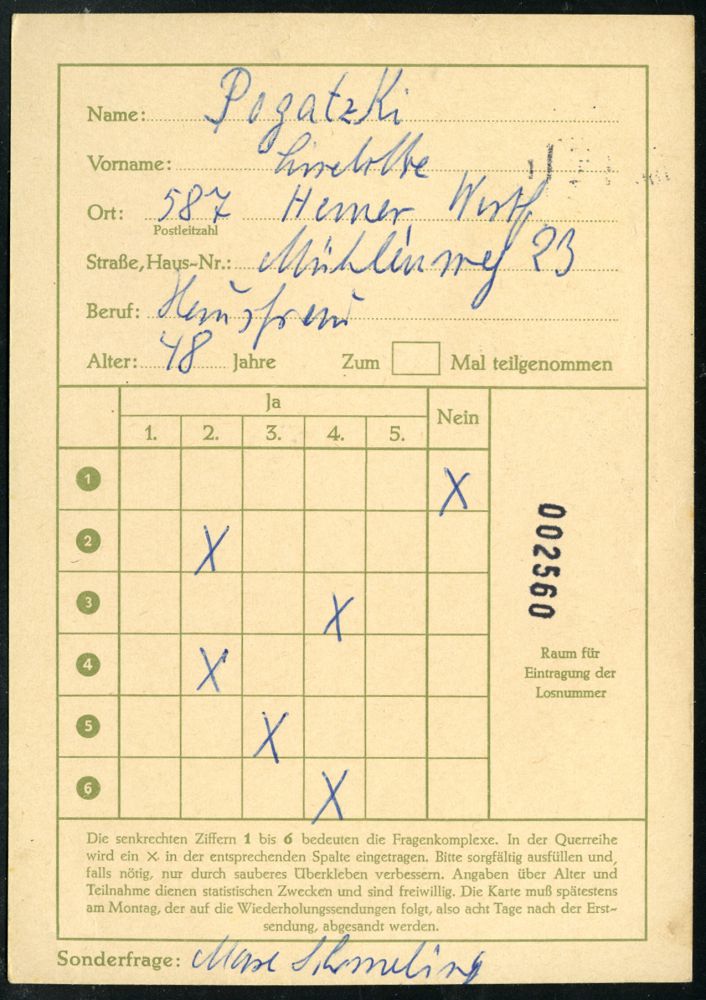 Name: Pogatzki
Vorname: Liselotte
Ort: 587 Hemer Westf.
Postleitzahl
Straße, Haus-Nr.: Mühlenweg 23
Beruf: Hausfrau
Alter: 48 Jahre Zum Mal teilgenommen
Ja Nein
1. 2. 3. 4. 5.
1 X
2 X
3 X
4 X
5 X
6 X
002560
Raum für
Eintragung der
Losnummer
Die senkrechten Ziffern 1 bis 6 bedeuten die Fragenkomplexe. In der Querreihe
wird ein × in der entsprechenden Spalte eingetragen. Bitte sorgfältig ausfüllen und,
falls nötig, nur durch sauberes Überkleben verbessern. Angaben über Alter und
Teilnahme dienen statistischen Zwecken und sind freiwillig. Die Karte muß spätestens
am Montag, der auf die Wiederholungssendungen folgt, also acht Tage nach der Erst-
sendung, abgesandt werden.
Sonderfrage: Max Schmeling